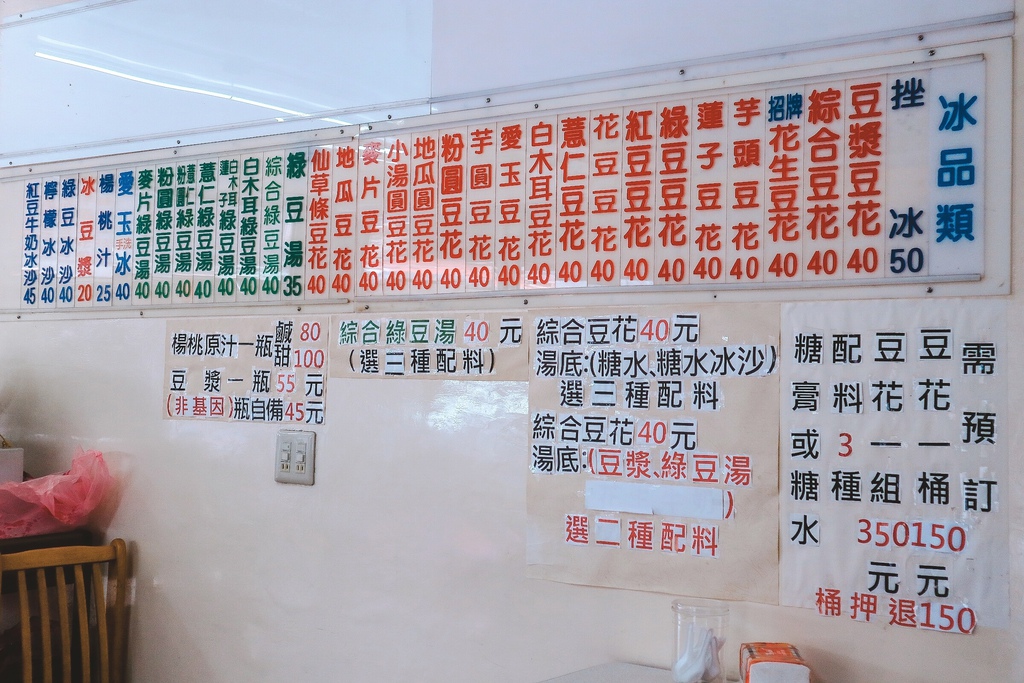 冰品類
挫冰50
豆漿豆花40
綜合豆花40
招牌花生豆花40
芋頭豆花40
蓮子豆花40
綠豆豆花40
紅豆豆花40
花豆豆花40
薏仁豆花40
白木耳豆花40
愛玉豆花40
芋圓豆花40
粉圓豆花40
地瓜圓豆花40
小湯圓豆花40
麥片豆花40
地瓜豆花40
仙草條豆花40
綠豆湯35
綜合綠豆湯40
白木耳綠豆湯40
白木耳蓮子綠豆湯40
薏仁綠豆湯40
粉圓薏仁綠豆湯40
粉圓綠豆湯40
麥片綠豆湯40
愛玉手洗冰40
楊桃汁25
冰豆漿20
綠豆冰沙40
檸檬冰沙40
紅豆牛奶冰沙45
楊桃原汁一瓶鹹80
甜100
豆漿一瓶55元
(非基因)瓶自備45元
綜合綠豆湯40元
(選三種配料)
綜合豆花40元
湯底:(糖水、糖水冰沙)
選三種配料
綜合豆花40元
湯底:(豆漿、綠豆湯
)
選二種配料
需預訂
豆花一桶150元
豆花一組350元
配料3種
糖膏或糖水
桶押退150